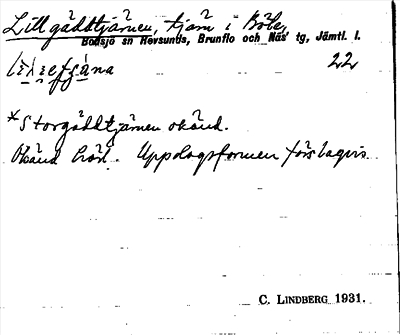 Lillgäddtjärnen, tjärn i Böle,
Bodsjö sn Revsunds, Brunflo och Näs' tg, Jämtl. l.
22
*Storgäddtjärnen okänd.
Okänd härl. Uppslagsformen förslagsvis.
C. LINDBERG 1931.